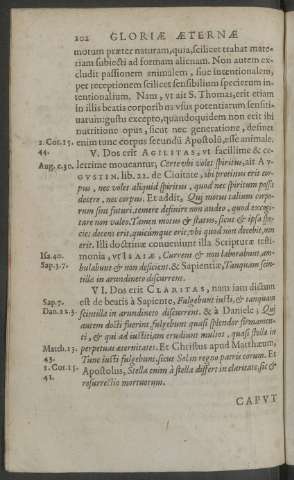 102 GLORIÆ ÆTERNÆ
motum præter naturam, quia, scilicet trahat mate-
riam subiecti ad formam alienam. Non autem ex-
cludit passionem animalem, siue intentionalem,
per receptionem scilicet sensibilium specierum in-
tentionalium. Nam, vt ait S. Thomas, erit etiam
in illis beatis corporibus vsus potentiarum sensiti-
uarum: gustu excepto, quandoquidem non erit ibi
nutritione opus, sicut nec generatione, desinet
1. Cor. 15. enim tunc corpus secundū Apostolū, esse animale.
44. V. Dos erit AGILITAS, vt facillime & ce-
Aug. c. 30. lerrime moueantur, Certe vbi volet spiritus, ait AV-
GVSTIN. lib. 22. de Ciuitate, ibi protinus erit cor-
pus, nec volet aliquid spiritus, quod nec spiritum possit
decere, nec corpus. Et addit, Qui motus talium corpo-
rum sint futuri, temere definire non audeo, quod excogi-
tare non valeo. Tamen motus & status, sicut & ipsa spe-
cies decens erit, quicumque erit, vbi quod non decebit, non
erit. Illi doctrinæ conueniunt illa Scripturæ testi-
Isa. 40. monia, vt ISAIÆ, Current & non laborabunt, am-
Sap. 3. 7. bulabunt & non deficient. & Sapientiæ, Tanquam scin-
tillæ in arundineto discurrent.
VI. Dos erit CLARITAS, nam iam dictum
Sap. 7. est de beatis à Sapiente, Fulgebunt iusti, & tanquam
Dan. 12. 3 scintillæ in arundineto discurrent. & à Daniele, Qui
autem docti fuerint, fulgebunt quasi splendor firmamen-
ti, & qui ad iustitiam erudiunt multos, quasi stellæ in
Match. 13. perpetuas æternitates. Et Christus apud Matthæum,
43. Tunc iusti fulgebunt, sicut Sol in regno patris eorum. Et
1. Cor. 15. Apostolus, Stella enim à stella differt in claritate, sic &
41. resurrectio mortuorum.
CAPVT